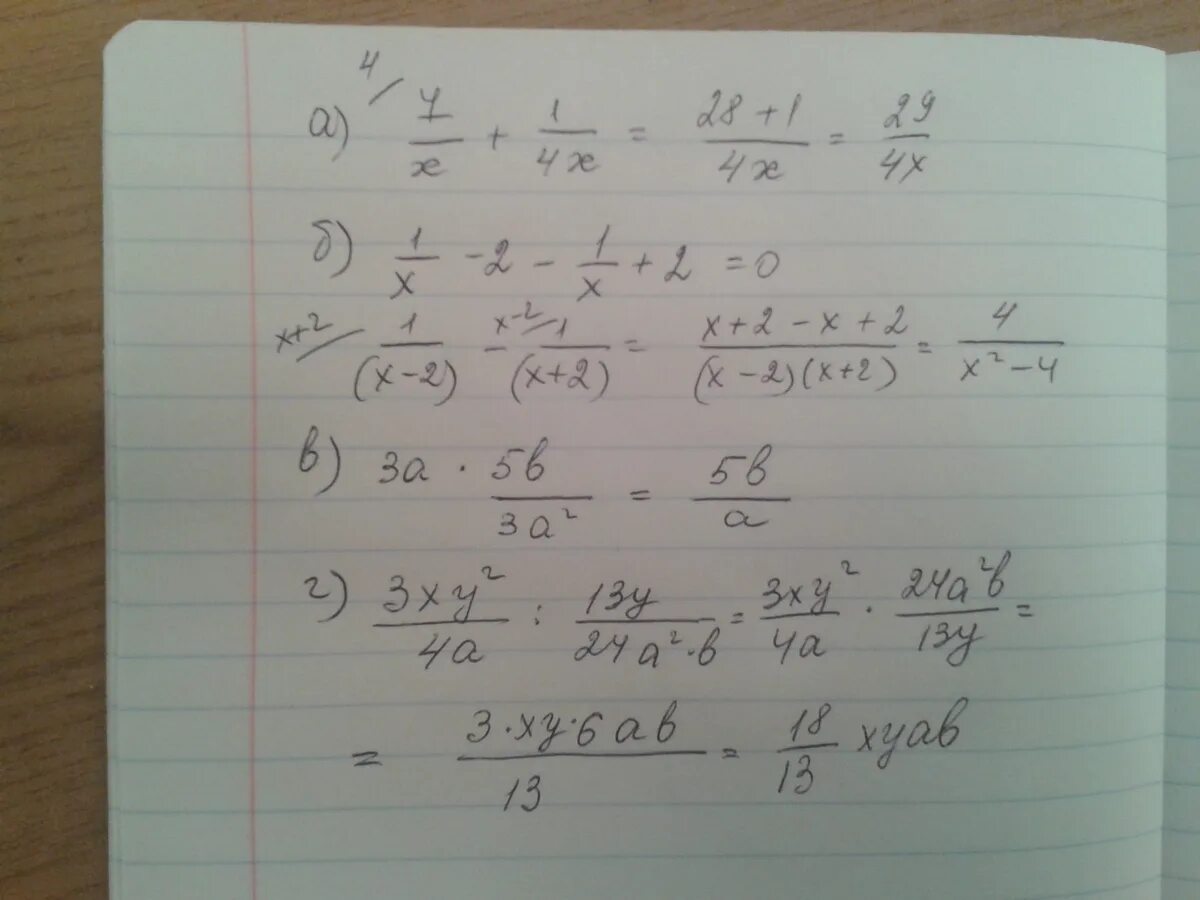 а) 4/ 7/x + 1/4x = 28+1/4x = 29/4x
б) 1/x - 2 - 1/x + 2 = 0
x+2/ 1/(x-2) - x-2/ 1/(x+2) = x+2-x+2/(x-2)(x+2) = 4/x²-4
в) 3a · 5b/3a² = 5b/a
г) 3xy²/4a : 13y/24a²·b = 3xy²/4a · 24a²b/13y =
= 3·xy·6ab/13 = 18/13 xyab